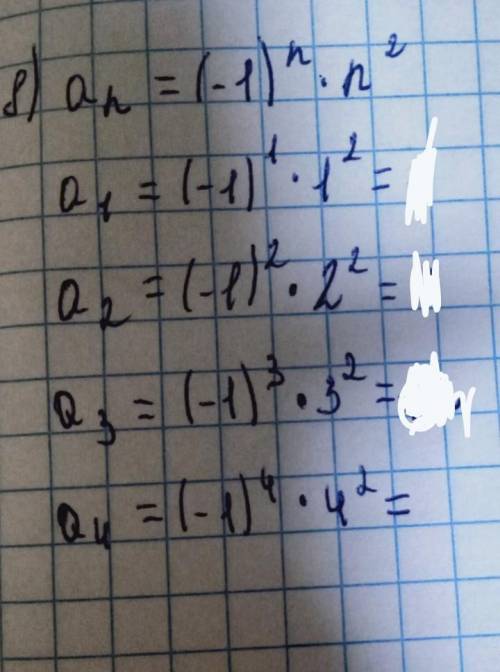 8) aₙ = (-1)ⁿ · n²
a₁ = (-1)¹ · 1² =
a₂ = (-1)² · 2² =
a₃ = (-1)³ · 3² =
a₄ = (-1)⁴ · 4² =